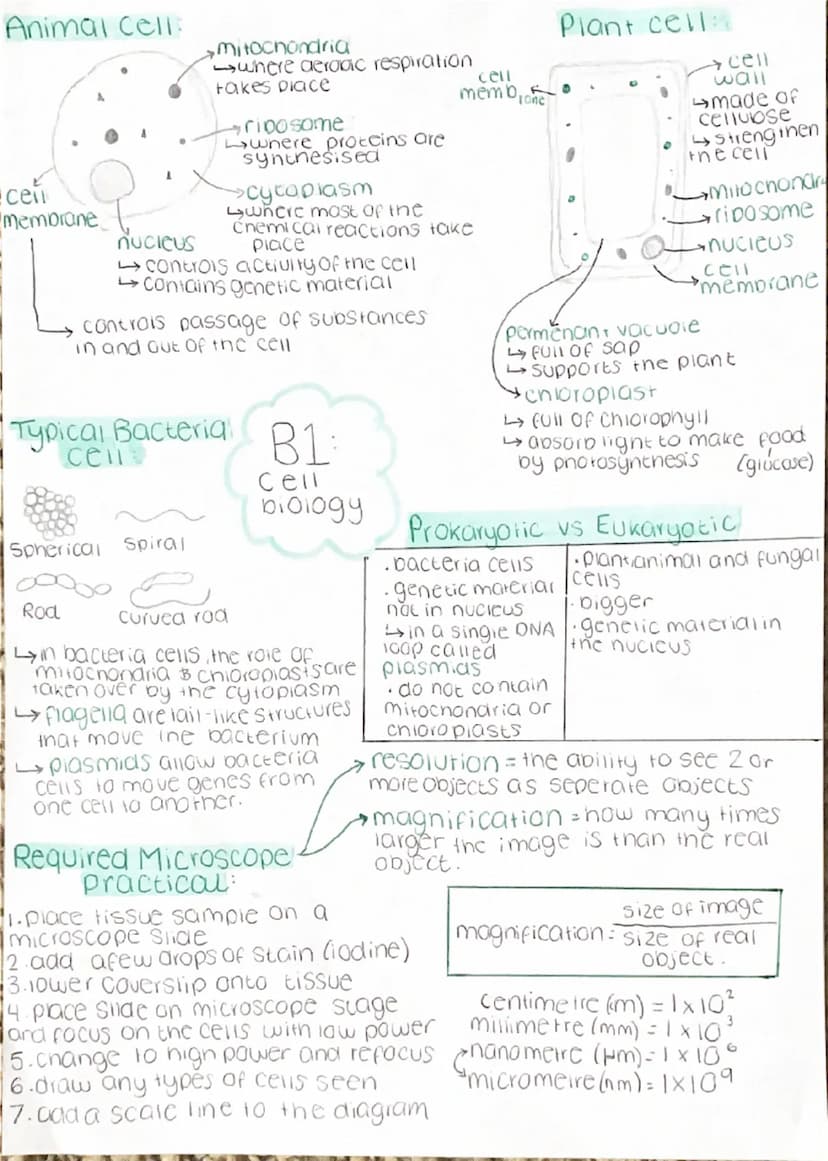 Animal Cell:
mitochondria
↳where aerobic respiration
takes place
ribosome
↳where proteins are
synthesised
cytoplasm
↳where most of the
chemical reactions take
place
cell
membrane
nucleus
↳ controls activity of the cell
↳ contains genetic material
controls passage of substances
in and out of the cell
Plant cell:
cell
membrane
cell
wall
↳made of
cellulose
↳strengthen
the cell
mitochondri
ribosome
nucleus
cell
membrane
permenant vacuole
↳ full of sap
↳ supports the plant
chloroplast
↳ full of chlorophyll
↳ absorb light to make food
by photosynthesis (glucose)
B1:
cell
biology
Typical Bacteria
cell:
Spherical
Spiral
Rod
Curved rod
↳in bacteria cells, the role of
mitochondria & chloroplasts are
taken over by the cytoplasm
↳ flagella are tail-like structures
that move the bacterium
↳ plasmids allow bacteria
cells to move genes from
one cell to another.
Prokaryotic vs Eukaryotic
. bacteria cells
. genetic material
not in nucleus
↳in a single DNA
loop called
plasmids
. do not contain
mitochondria or
chloroplasts
. plant, animal and fungal
cells
. bigger
. genetic material in
the nucleus
resolution = the ability to see 2 or
more objects as seperate objects
magnification = how many times
larger the image is than the real
object.
Required Microscope
Practical:
1. place tissue sample on a
microscope slide
2. add a few drops of stain (iodine)
3. lower coverslip onto tissue
4. place slide on microscope stage
and focus on the cells with low power
5. change to high power and refocus
6. draw any types of cells seen
7. add a scale line to the diagram
magnification = size of image
size of real
object.
centimetre (cm) = 1 x 10²
millimetre (mm) = 1 x 10³
nanometre (μm) = 1 x 10⁶
micrometre (nm) = 1x10⁹